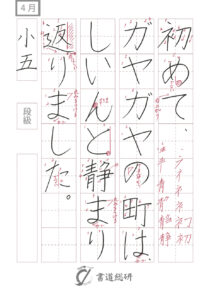 4月
初めて、
ガヤガヤの町は
しいんと静まり
返りました。
小五
段級
書道総研